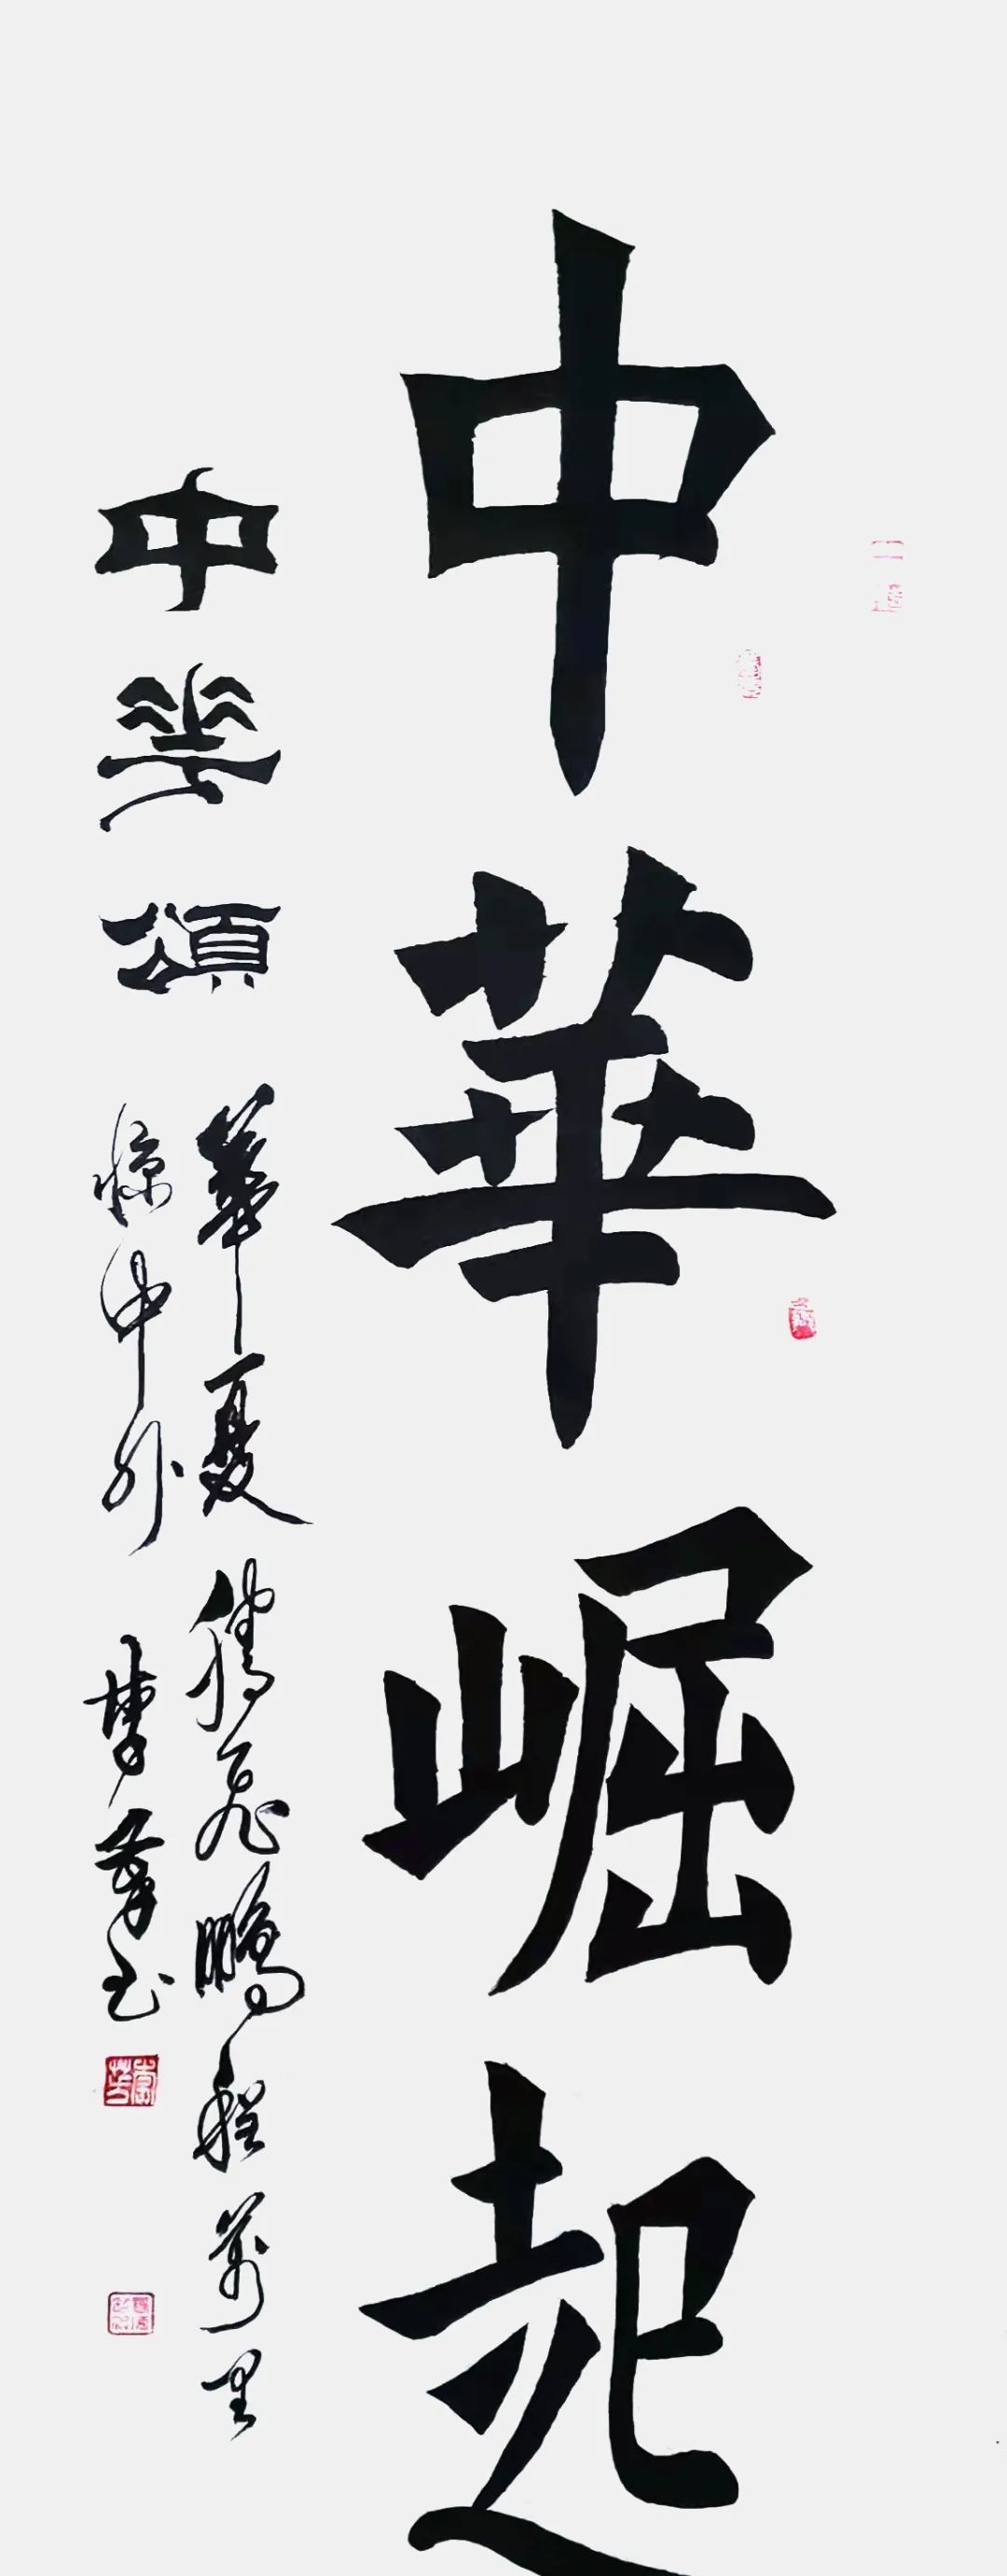 中華崛起
中華頌
華夏騰飛鵬程萬里
惊中外